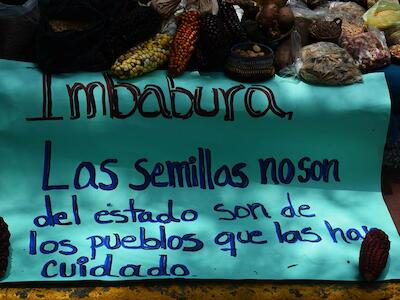 Imbabura,
Las semillas no son
del estado son de
los pueblos que las han
cuidado